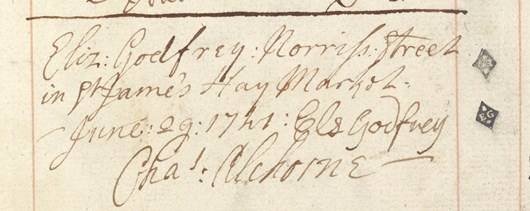 Eliz: Godfrey: Norriss: street
in St James's Hay Market.
June: 29: 1741: Elz Godfrey
Chas: Alchorne
EG